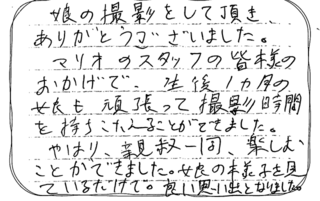 娘の撮影をして頂き、
ありがとうございました。
マリオのスタッフの皆様の
おかげで、生後1ヵ月の
娘も頑張って撮影時間
を持ちこたえることができました。
やはり、親族一同、楽しむ
ことができました。娘の様子を見
ているだけで。良い思い出となりました。